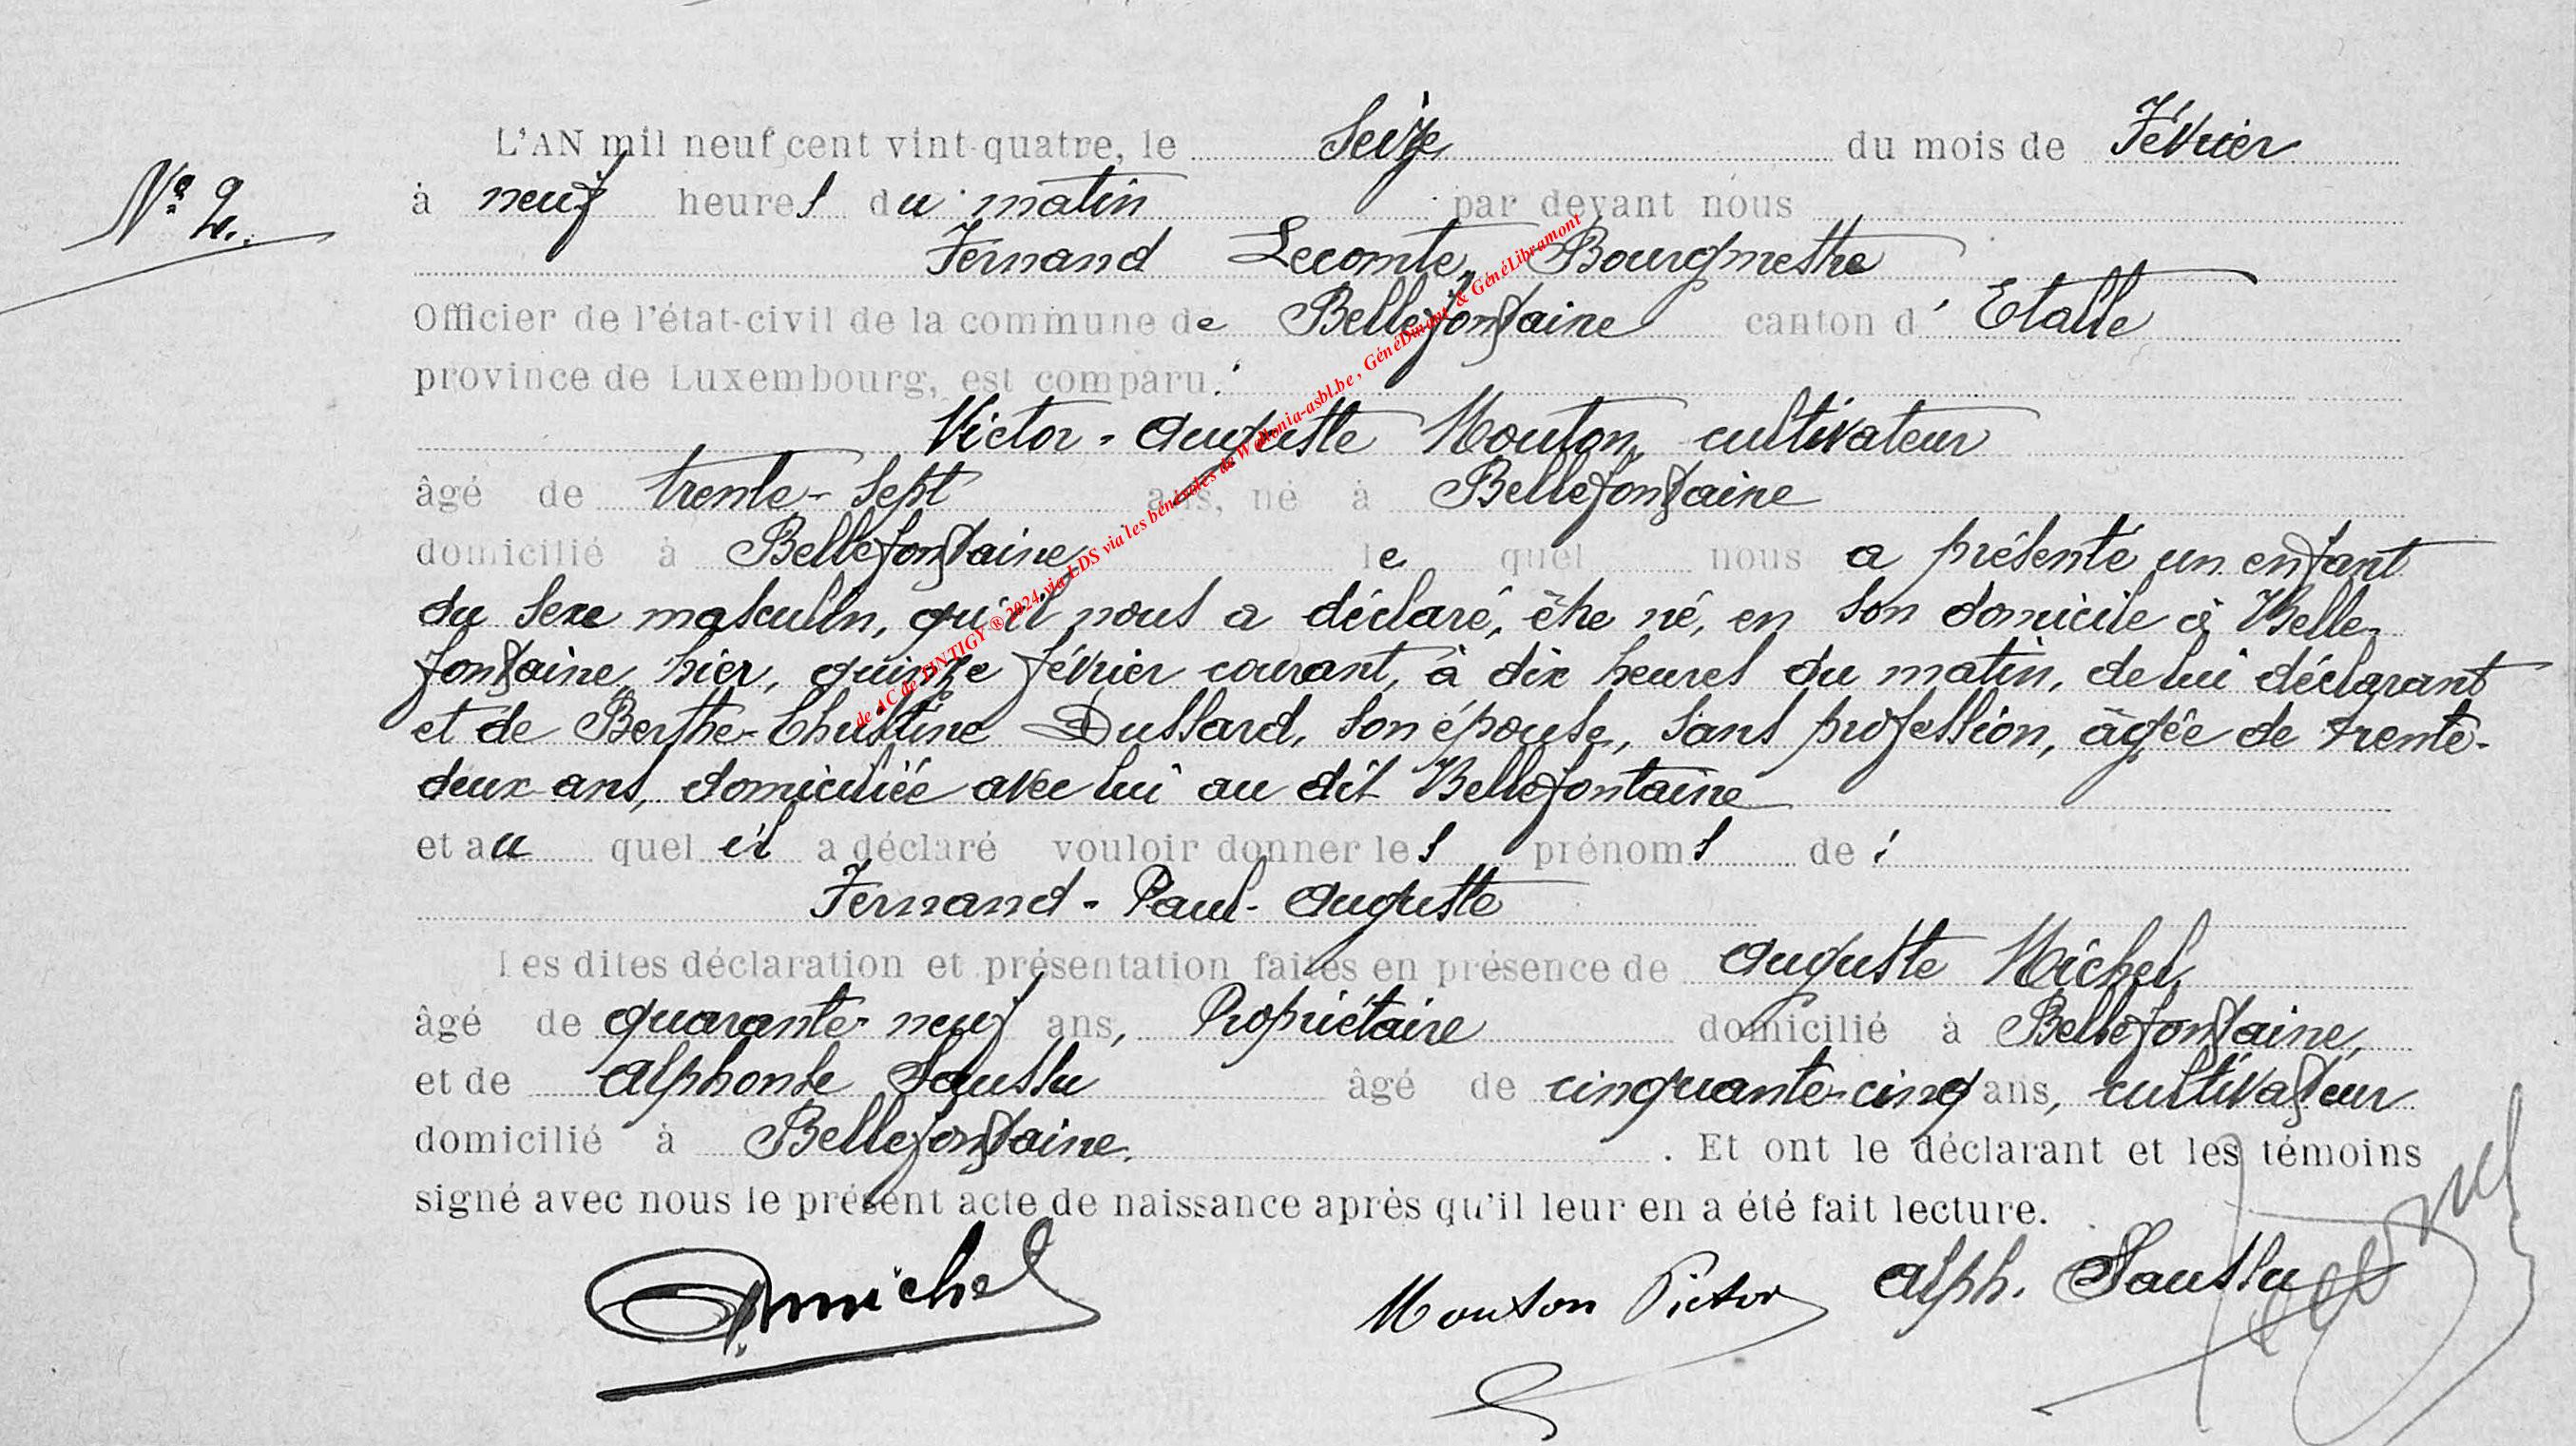 L'AN mil neuf cent vint-quatre, le Seize du mois de Février
N° 2.
à neuf heures du matin par devant nous
Fernand Lecomte, Bourgmestre
Officier de l'état-civil de la commune de Bellefontaine canton d'Etalle
province de Luxembourg, est comparu :
Victor-Auguste Mouton, cultivateur
âgé de trente-sept ans, né à Bellefontaine
domicilié à Bellefontaine, le quel nous a présenté un enfant
du sexe masculin, qu'il nous a déclaré, être né, en son domicile à Belle-
fontaine, hier, quinze février courant, à dix heures du matin, de lui déclarant
et de Berthe-Christine Dussard, son épouse, sans profession, âgée de trente-
deux ans, domiciliée avec lui au dit Bellefontaine
et au quel il a déclaré vouloir donner les prénoms de :
Fernand-Paul-Auguste
Les dites déclaration et présentation faites en présence de Auguste Michel,
âgé de quarante-neuf ans, Propriétaire domicilié à Bellefontaine,
et de Alphonse Saussu âgé de cinquante-cinq ans, cultivateur
domicilié à Bellefontaine. . Et ont le déclarant et les témoins
signé avec nous le présent acte de naissance après qu'il leur en a été fait lecture.
Amichel Mouton Victor Alph. Saussu
de AC de TINTIGY ® 2024 via LDS via les bénévoles de Wallonia-asbl.be, GénéDinant & GénéLibramont